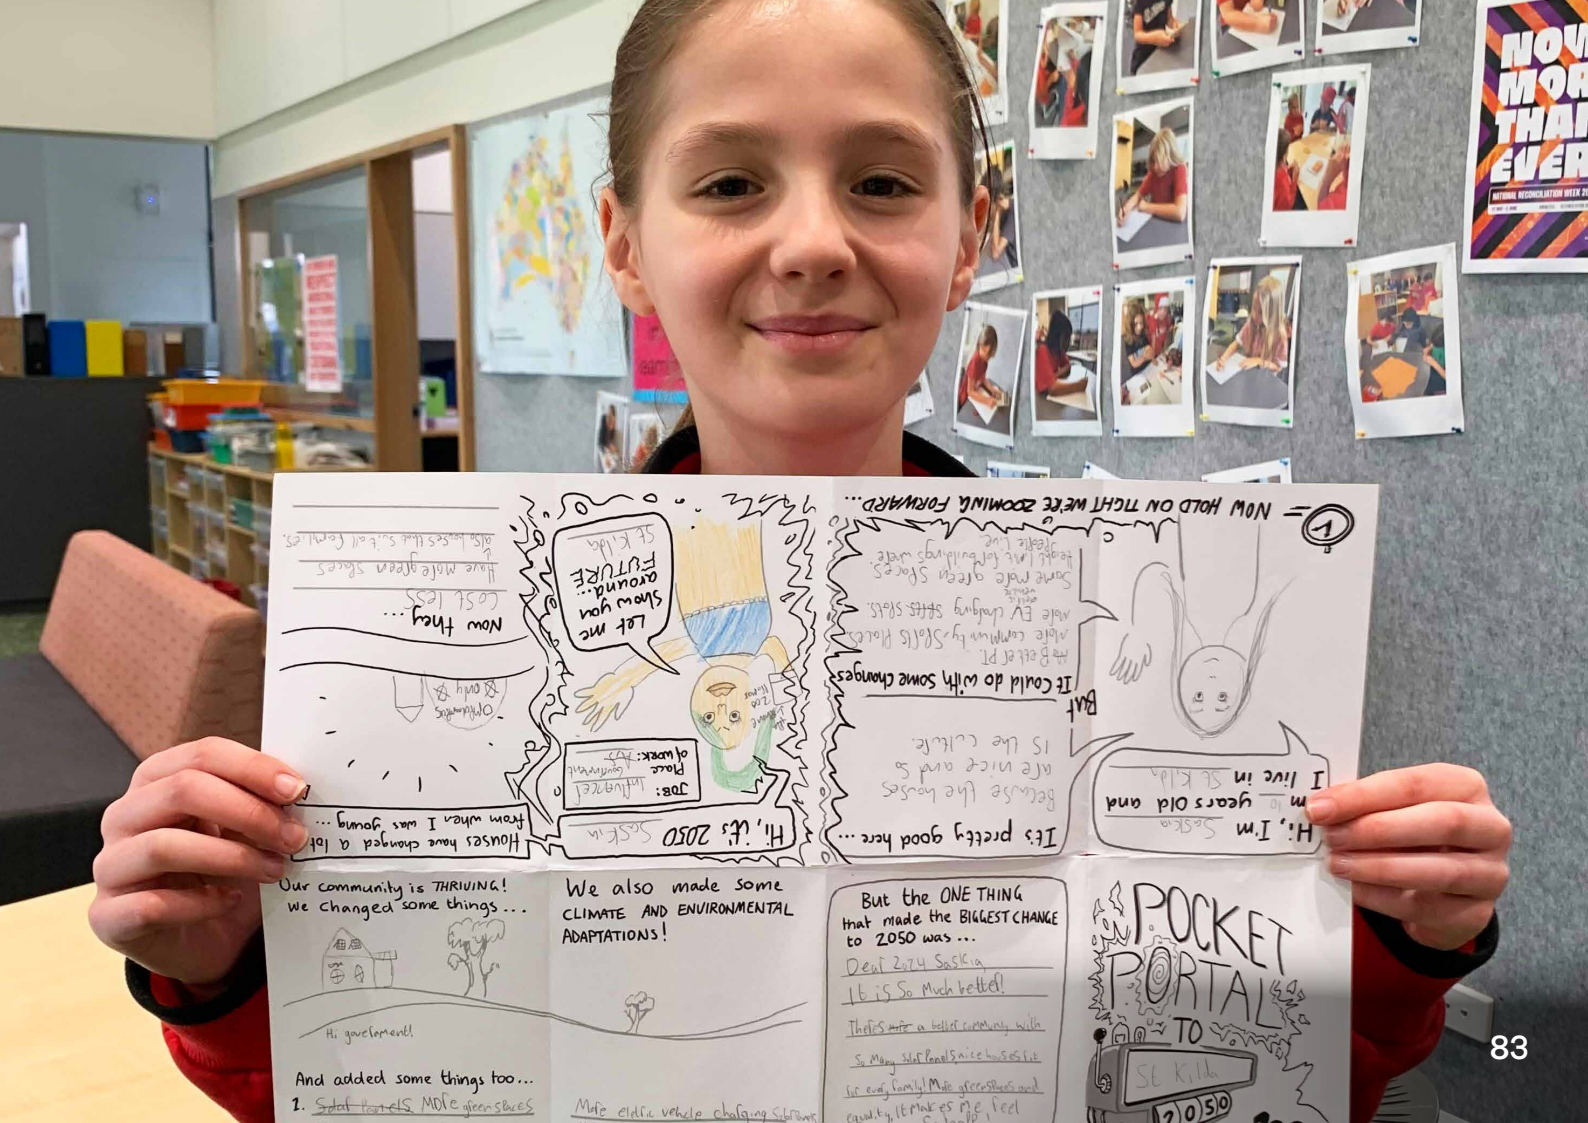 NOW
MORE
THAN
EVER
NATIONAL RECONCILIATION WEEK
POCKET
PORTAL
TO
St Kilda
2050
Hi, I'm Saskia
I'm 10 years old and
I live in St Kilda
It's pretty good here...
Because the houses
are nice and so
is the culture.
But
It could do with some changes
Better PT.
More community sports places.
More EV charging spots.
Some more green spaces.
Height limit for buildings where
people live.
1
NOW HOLD ON TIGHT WE'RE ZOOMING FORWARD...
Hi, it's 2050
Saskia
JOB: Influencer
Place of work: Government
Let me
show you
around...
FUTURE
St Kilda
Houses have changed a lot
from when I was young ...
only
Now they...
Cost less
Have more green spaces
also houses that suit all families.
Our community is THRIVING!
we changed some things...
Hi goverement!
And added some things too...
1. Solar Panels More green spaces
We also made some
CLIMATE AND ENVIRONMENTAL
ADAPTATIONS!
More eletric vehicle charging
But the ONE THING
that made the BIGGEST CHANGE
to 2050 was ...
Dear 2024 Saskia
It is so much better!
Theres more a better community with
so many solar panels, nice houses fit
for every family! More green spaces and
equality, It makes me feel
83